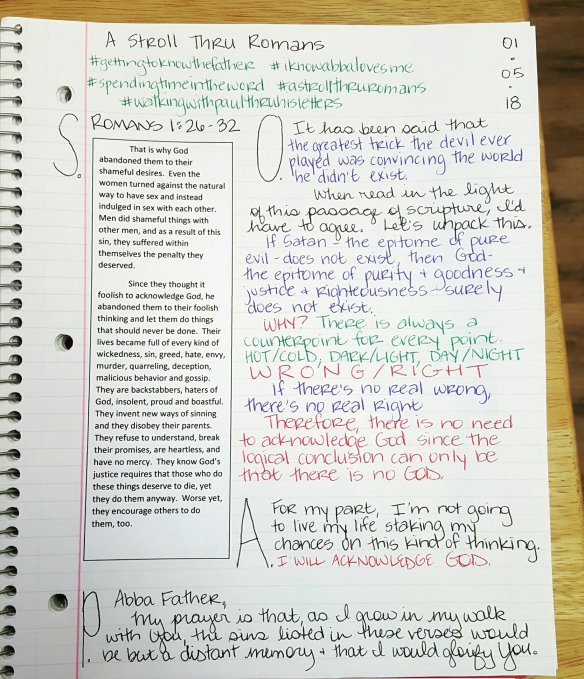 A Stroll Thru Romans
01
.
05
.
18
#gettingtoknowthefather #iknowabbalovesme
#spendingtimeintheword #astrollthruromans
#walkingwithpaulthruhisletters
S.
ROMANS 1:26-32
That is why God
abandoned them to their
shameful desires. Even the
women turned against the natural
way to have sex and instead
indulged in sex with each other.
Men did shameful things with
other men, and as a result of this
sin, they suffered within
themselves the penalty they
deserved.
Since they thought it
foolish to acknowledge God, he
abandoned them to their foolish
thinking and let them do things
that should never be done. Their
lives became full of every kind of
wickedness, sin, greed, hate, envy,
murder, quarreling, deception,
malicious behavior and gossip.
They are backstabbers, haters of
God, insolent, proud and boastful.
They invent new ways of sinning
and they disobey their parents.
They refuse to understand, break
their promises, are heartless, and
have no mercy. They know God's
justice requires that those who do
these things deserve to die, yet
they do them anyway. Worse yet,
they encourage others to do
them, too.
O.
It has been said that
the greatest trick the devil ever
played was convincing the world
he didn't exist.
When read in the light
of this passage of scripture, I'd
have to agree. Let's unpack this.
If Satan - the epitome of pure
evil - does not exist, then God -
the epitome of purity + goodness +
justice + righteousness - surely
does not exist.
WHY? There is always a
counterpoint for every point.
HOT/COLD, DARK/LIGHT, DAY/NIGHT
WRONG/RIGHT
If there's no real wrong,
there's no real Right
Therefore, there is no need
to acknowledge God since the
logical conclusion can only be
that there is no GOD.
A.
For my part, I'm not going
to live my life staking my
chances on this kind of thinking.
I WILL ACKNOWLEDGE GOD.
P.
Abba Father,
My prayer is that, as I grow in my walk
with You, the sins listed in these verses would
be but a distant memory + that I would glorify You.